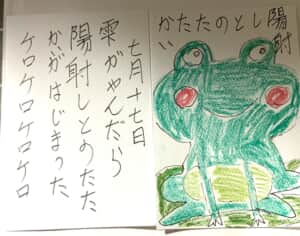 陽射しとのたたかい
七月十七日
雫がやんだら
陽射しとのたた
かいがはじまった
ケロケロケロケロ